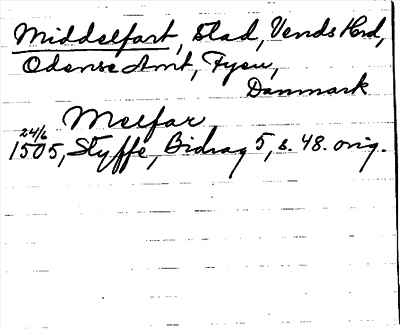 Middelfart, Stad, Vends Hrd,
Odense Amt, Fyen,
Danmark
Melfar
24/6
1505, Styffe, Bidrag 5, s. 48. orig.